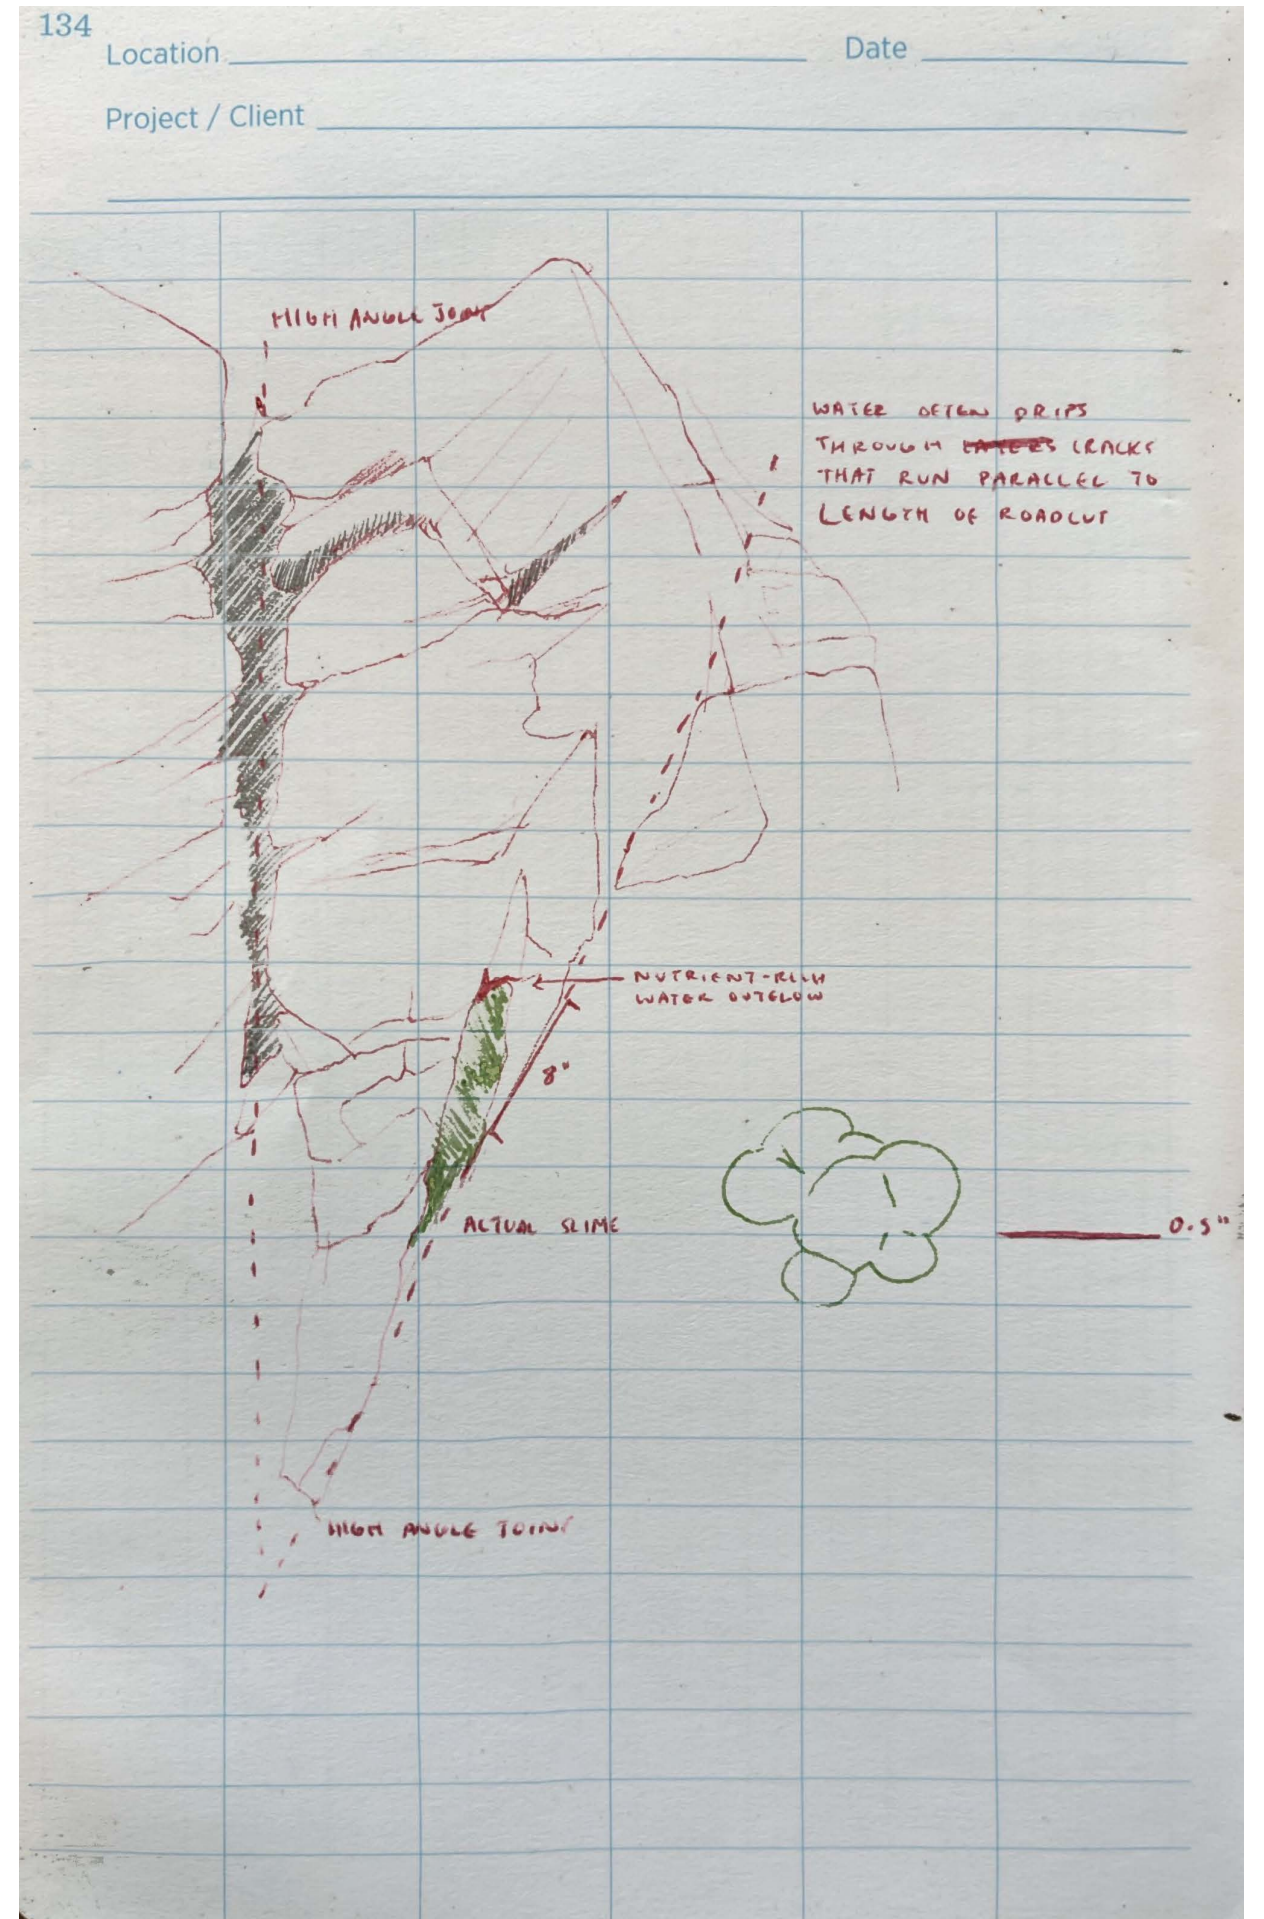 134
Location
Date
Project / Client
HIGH ANGLE JOINT
WATER OFTEN DRIPS
THROUGH LAYERS CRACKS
THAT RUN PARALLEL TO
LENGTH OF ROADCUT
NUTRIENT-RICH
WATER OUTFLOW
8"
ACTUAL SLIME
0.5"
HIGH ANGLE JOINT